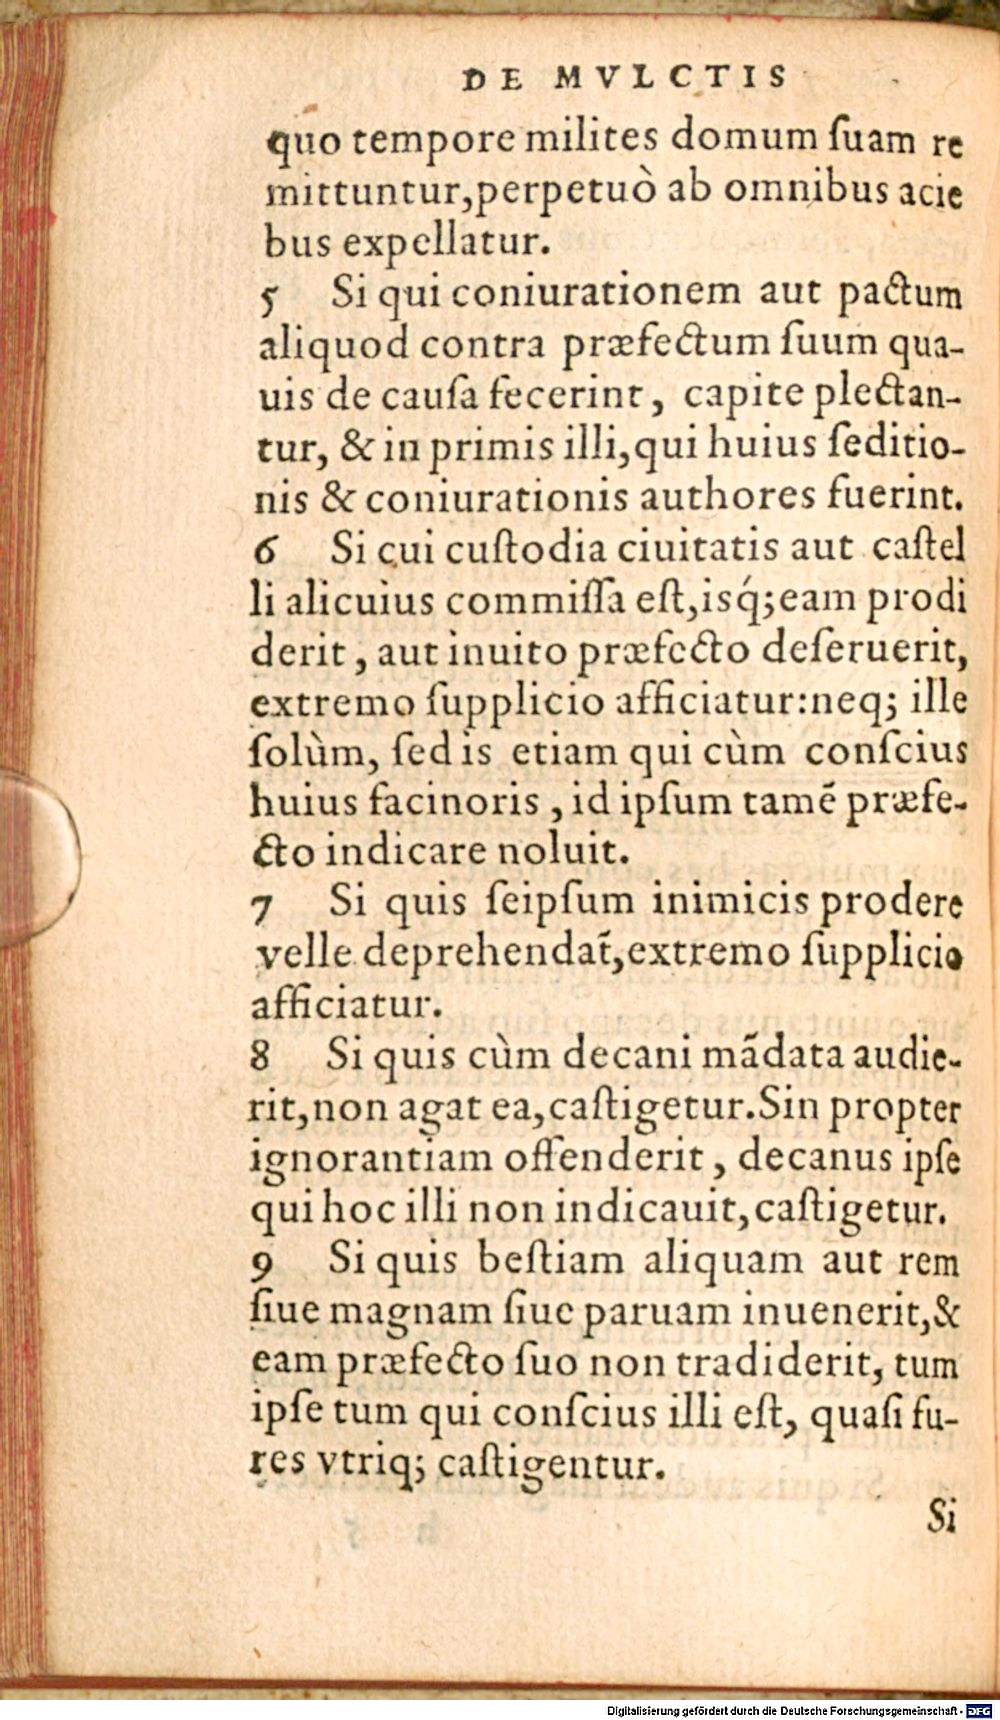 DE MVLCTIS
quo tempore milites domum ſuam re
mittuntur,perpetuò ab omnibus acie
bus expellatur.
5 Si qui coniurationem aut pactum
aliquod contra præfectum ſuum qua-
uis de cauſa fecerint, capite plectan-
tur, & in primis illi,qui huius ſeditio-
nis & coniurationis authores fuerint.
6 Si cui cuſtodia ciuitatis aut caſtel
li alicuius commiſſa eſt,isq́;eam prodi
derit, aut inuito præfecto deſeruerit,
extremo ſupplicio afficiatur:neq; ille
ſolùm, ſed is etiam qui cùm conſcius
huius facinoris, id ipſum tamẽ præfe-
cto indicare noluit.
7 Si quis ſeipſum inimicis prodere
velle deprehendat̃,extremo ſupplicio
afficiatur.
8 Si quis cùm decani mãdata audie-
rit,non agat ea,caſtigetur.Sin propter
ignorantiam offenderit, decanus ipſe
qui hoc illi non indicauit,caſtigetur.
9 Si quis beſtiam aliquam aut rem
ſiue magnam ſiue paruam inuenerit,&
eam præfecto ſuo non tradiderit, tum
ipſe tum qui conſcius illi eſt, quaſi fu-
res vtriq; caſtigentur.
Si
Digitalisierung gefördert durch die Deutsche Forschungsgemeinschaft - DFG